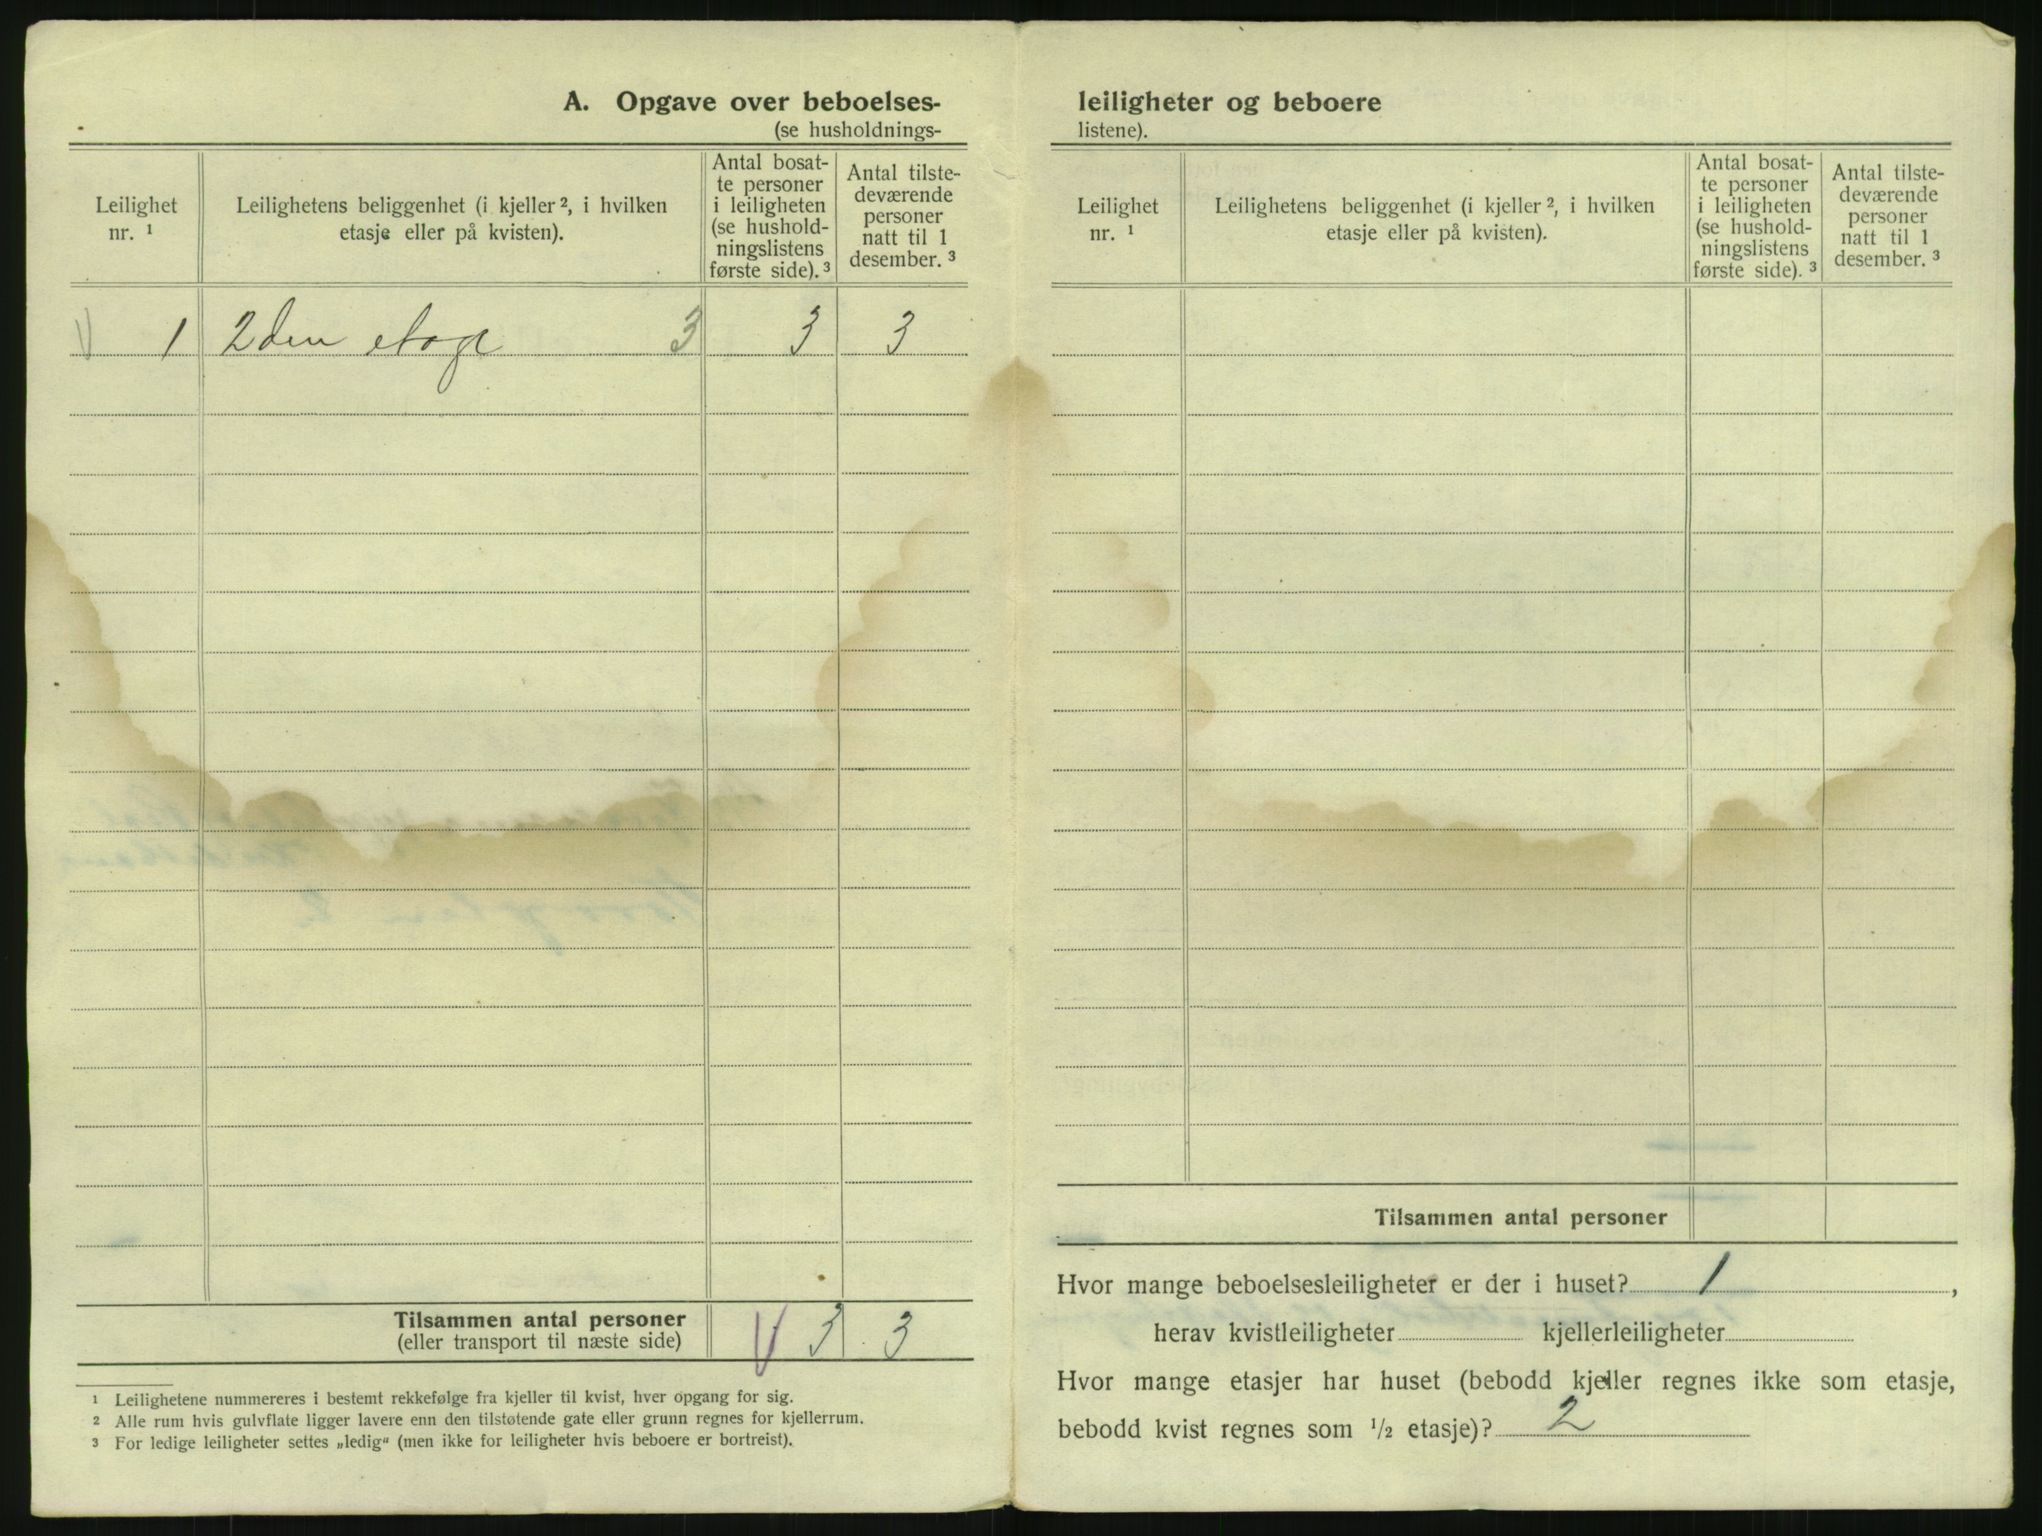 A. Opgave over beboelses-
(se husholdnings-
Leilighet
nr. ¹
Leilighetens beliggenhet (i kjeller ², i hvilken
etasje eller på kvisten).
Antal bosat-
te personer
i leiligheten
(se hushold-
ningslistens
første side). ³
Antal tilste-
deværende
personer
natt til 1
desember. ³
1 2den etage 3 3 3
Tilsammen antal personer
(eller transport til næste side)
3 3
¹ Leilighetene nummereres i bestemt rekkefølge fra kjeller til kvist, hver opgang for sig.
² Alle rum hvis gulvflate ligger lavere enn den tilstøtende gate eller grunn regnes for kjellerrum.
³ For ledige leiligheter settes „ledig“ (men ikke for leiligheter hvis beboere er bortreist).
leiligheter og beboere
listene).
Leilighet
nr. ¹
Leilighetens beliggenhet (i kjeller ², i hvilken
etasje eller på kvisten).
Antal bosat-
te personer
i leiligheten
(se hushold-
ningslistens
første side). ³
Antal tilste-
deværende
personer
natt til 1
desember. ³
Tilsammen antal personer
Hvor mange beboelsesleiligheter er der i huset? 1,
herav kvistleiligheter kjellerleiligheter
Hvor mange etasjer har huset (bebodd kjeller regnes ikke som etasje,
bebodd kvist regnes som ¹/₂ etasje)? 2